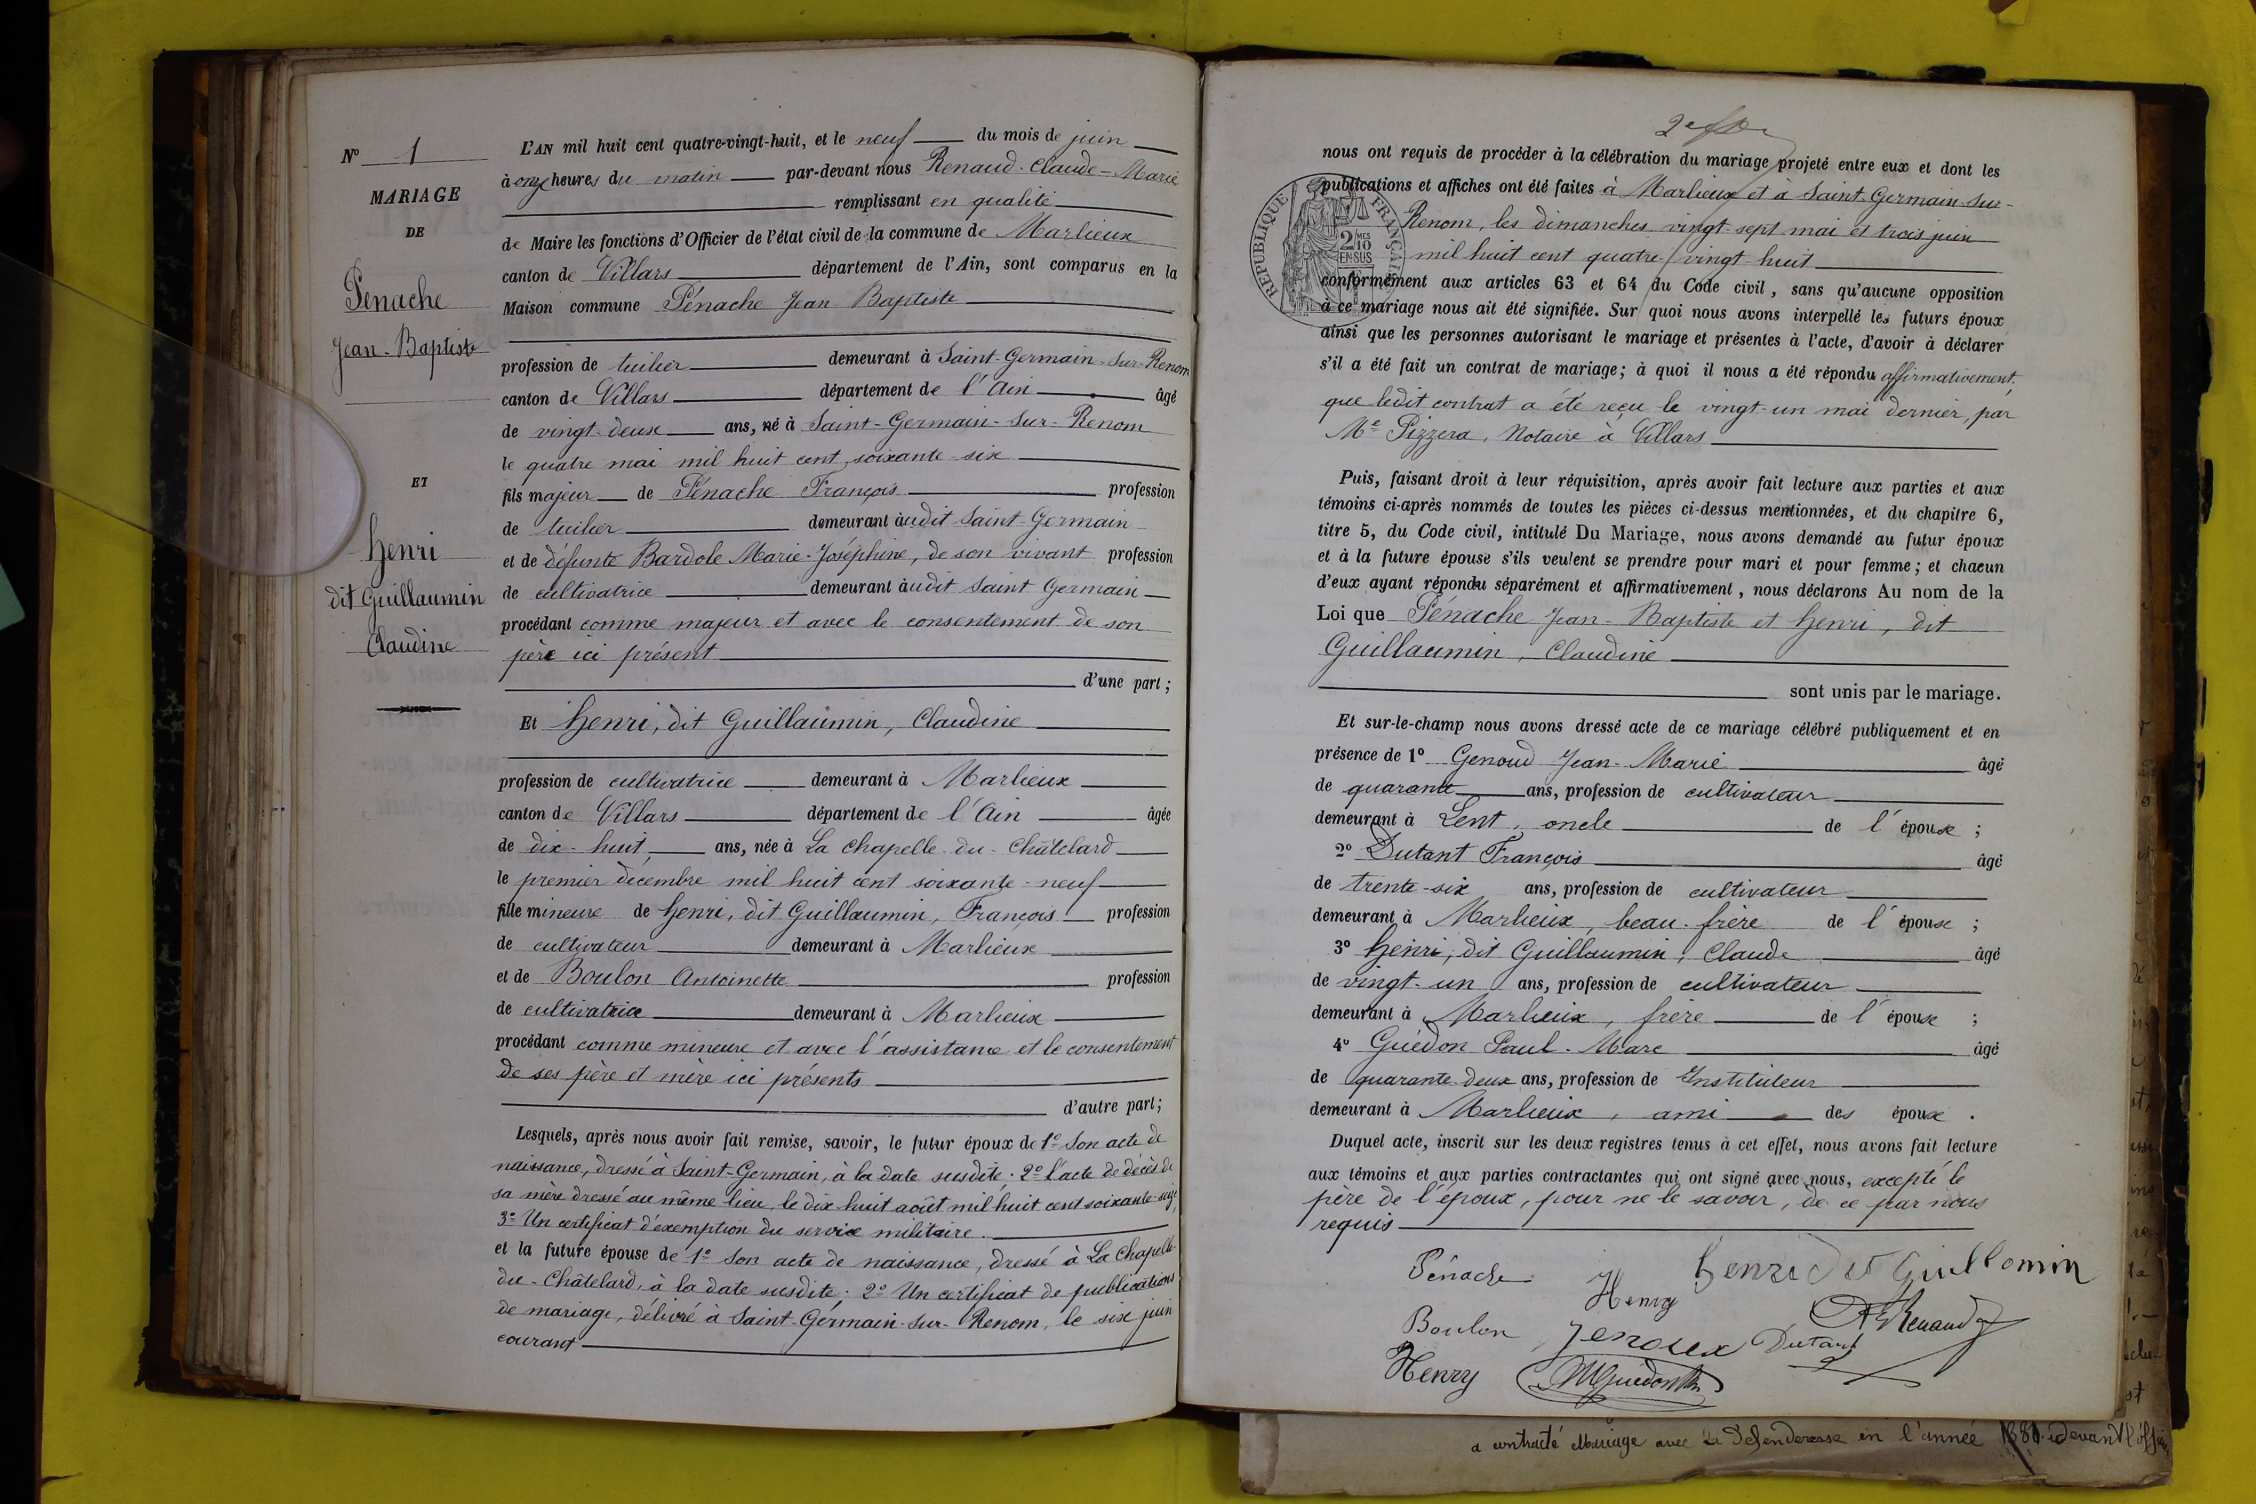 N° 1
MARIAGE
DE
Pénache
Jean-Baptiste
ET
Henri
dit Guillaumin
Claudine
L'AN mil huit cent quatre-vingt-huit, et le neuf du mois de juin
à onze heures du matin par-devant nous Renaud Claude-Marie
remplissant en qualité
de Maire les fonctions d'Officier de l'état civil de la commune de Marlieux
canton de Villars département de l'Ain, sont comparus en la
Maison commune Pénache Jean Baptiste
profession de tuilier demeurant à Saint-Germain-sur-Renom
canton de Villars département de l'Ain âgé
de vingt-deux ans, né à Saint-Germain-sur-Renom
le quatre mai mil huit cent soixante-six
fils majeur de Pénache François profession
de tuilier demeurant audit Saint-Germain
et de défunte Bardole Marie-Joséphine, de son vivant profession
de cultivatrice demeurant audit Saint Germain
procédant comme majeur et avec le consentement de son
père ici présent
d'une part;
Et Henri, dit Guillaumin, Claudine
profession de cultivatrice demeurant à Marlieux
canton de Villars département de l'Ain âgée
de dix-huit ans, née à La Chapelle-du-Châtelard
le premier décembre mil huit cent soixante-neuf
fille mineure de Henri, dit Guillaumin, François profession
de cultivateur demeurant à Marlieux
et de Boulon Antoinette profession
de cultivatrice demeurant à Marlieux
procédant comme mineure et avec l'assistance et le consentement
de ses père et mère ici présents
d'autre part;
Lesquels, après nous avoir fait remise, savoir, le futur époux de 1° Son acte de
naissance, dressé à Saint-Germain, à la date susdite. 2° l'acte de décès de
sa mère dressé au même lieu, le dix-huit août mil huit cent soixante-seize,
3° Un certificat d'exemption du service militaire.
et la future épouse de 1° Son acte de naissance, dressé à La Chapelle-
du-Châtelard, à la date susdite. 2° Un certificat de publications
de mariage, délivré à Saint-Germain-sur-Renom, le six juin
courant
nous ont requis de procéder à la célébration du mariage projeté entre eux et dont les
publications et affiches ont été faites à Marlieux et à Saint-Germain-sur-
Renom, les dimanches vingt-sept mai et trois juin
mil huit cent quatre-vingt-huit
RÉPUBLIQUE FRANÇAISE
2 MES
10
EN SUS
conformément aux articles 63 et 64 du Code civil, sans qu'aucune opposition
à ce mariage nous ait été signifiée. Sur quoi nous avons interpellé les futurs époux
ainsi que les personnes autorisant le mariage et présentes à l'acte, d'avoir à déclarer
s'il a été fait un contrat de mariage; à quoi il nous a été répondu affirmativement,
que ledit contrat a été reçu le vingt-un mai dernier, par
Me Pizzera, Notaire à Villars
Puis, faisant droit à leur réquisition, après avoir fait lecture aux parties et aux
témoins ci-après nommés de toutes les pièces ci-dessus mentionnées, et du chapitre 6,
titre 5, du Code civil, intitulé Du Mariage, nous avons demandé au futur époux
et à la future épouse s'ils veulent se prendre pour mari et pour femme; et chacun
d'eux ayant répondu séparément et affirmativement, nous déclarons Au nom de la
Loi que Pénache Jean-Baptiste et Henri, dit
Guillaumin, Claudine
sont unis par le mariage.
Et sur-le-champ nous avons dressé acte de ce mariage célébré publiquement et en
présence de 1° Genoud Jean-Marie âgé
de quarante ans, profession de cultivateur
demeurant à Lent, oncle de l'épouse;
2° Dutant François âgé
de trente-six ans, profession de cultivateur
demeurant à Marlieux, beau-frère de l'épouse;
3° Henri, dit Guillaumin, Claude âgé
de vingt-un ans, profession de cultivateur
demeurant à Marlieux, frère de l'épouse;
4° Guédon Paul-Marc âgé
de quarante-deux ans, profession de Instituteur
demeurant à Marlieux, ami des époux.
Duquel acte, inscrit sur les deux registres tenus à cet effet, nous avons fait lecture
aux témoins et aux parties contractantes qui ont signé avec nous, excepté le
père de l'époux, pour ne le savoir, de ce par nous
requis
Pénache Henry henri dit Guillomin
Boulon Dutant Renaud
Henry MGuédon
a contracté Mariage avec la défenderesse en l'année 1881 devant